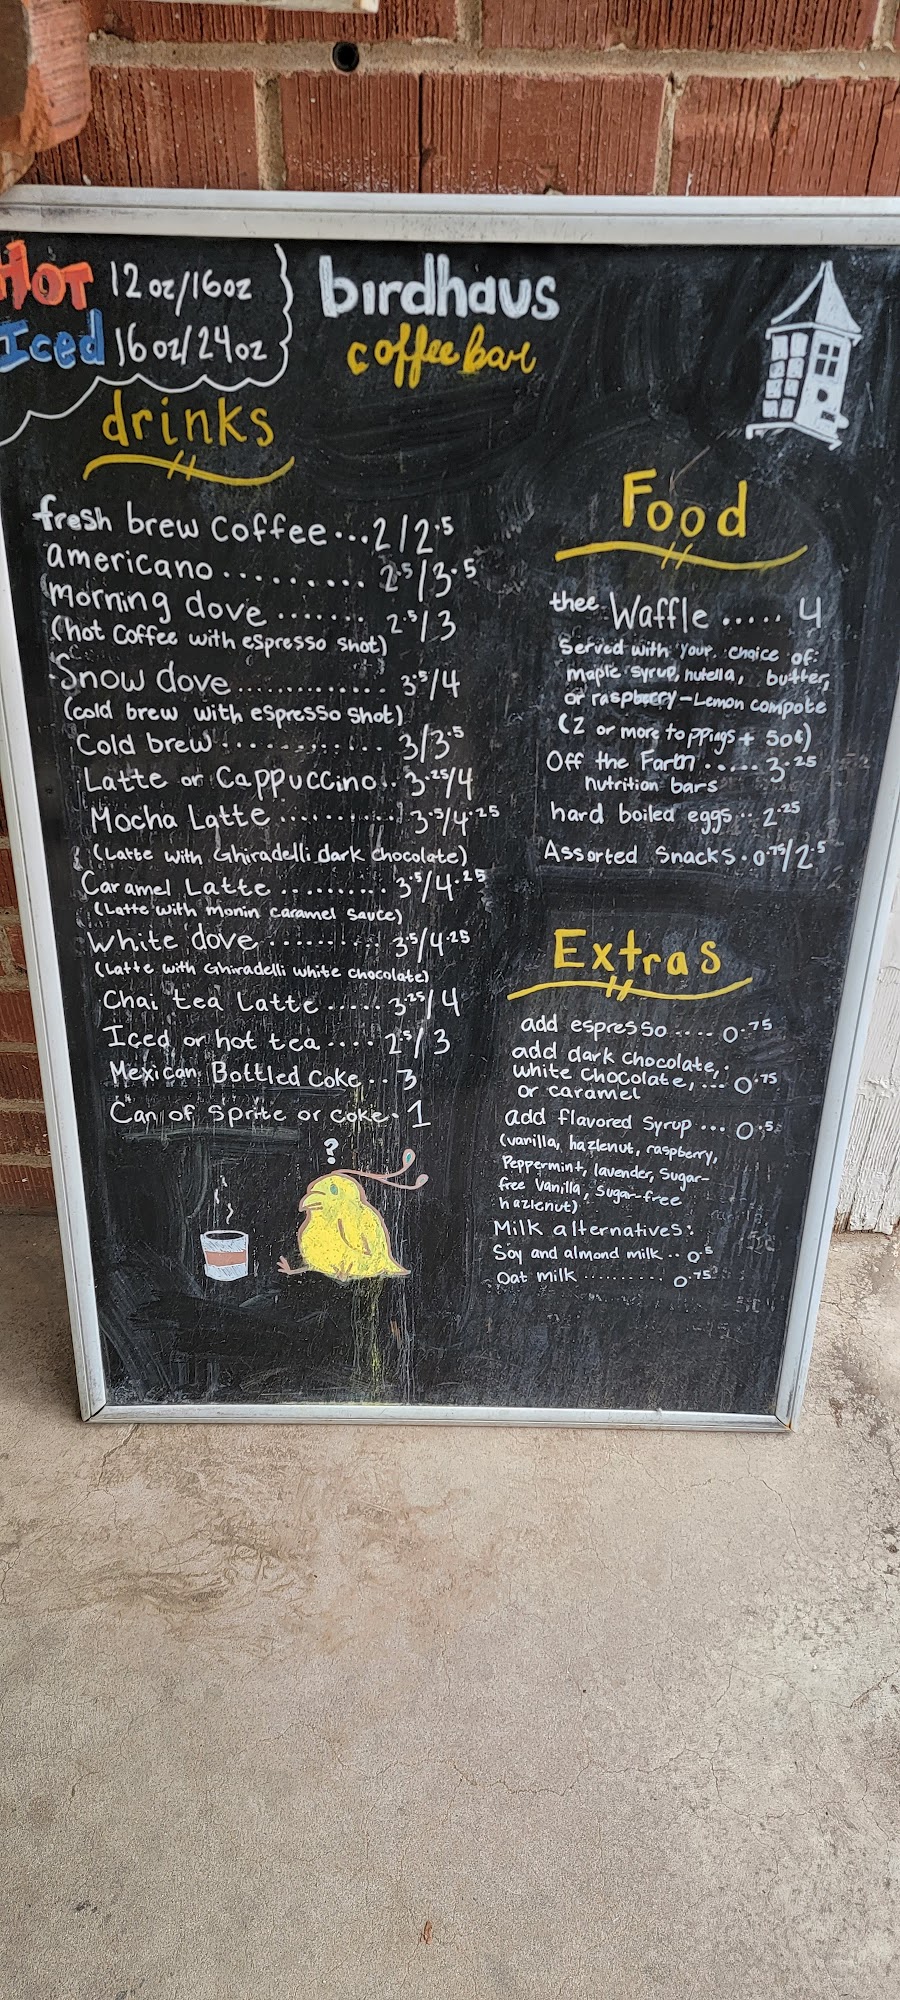 Hot 12oz/16oz
Iced 16oz/24oz
birdhaus
coffee bar
drinks
fresh brew coffee...2/2.5
americano.........2.5/3.5
morning dove.......2.5/3
(hot coffee with espresso shot)
Snow dove..............3.5/4
(cold brew with espresso shot)
Cold brew............3/3.5
Latte or Cappuccino..3.25/4
Mocha Latte..........3.5/4.25
(Latte with Ghiradelli dark chocolate)
Caramel Latte..........3.5/4.25
(Latte with Monin caramel sauce)
white dove..........3.5/4.25
(Latte with Ghiradelli white chocolate)
Chai tea Latte.....3.25/4
Iced or hot tea....2.5/3
Mexican Bottled Coke..3
Can of Sprite or coke.1
?
Food
thee Waffle.....4
Served with your choice of:
maple syrup, nutella, butter,
or raspberry-Lemon compote
(2 or more toppings + 50¢)
Off the Farm.....3.25
nutrition bars
hard boiled eggs..2.25
Assorted Snacks.0.75/2.5
Extras
add espresso....0.75
add dark chocolate,
white chocolate,...0.75
or caramel
add flavored Syrup...0.5
(vanilla, hazlenut, raspberry,
Peppermint, lavender, Sugar-
free Vanilla, Sugar-free
hazlenut)
Milk alternatives:
Soy and almond milk..0.5
Oat milk..........0.75